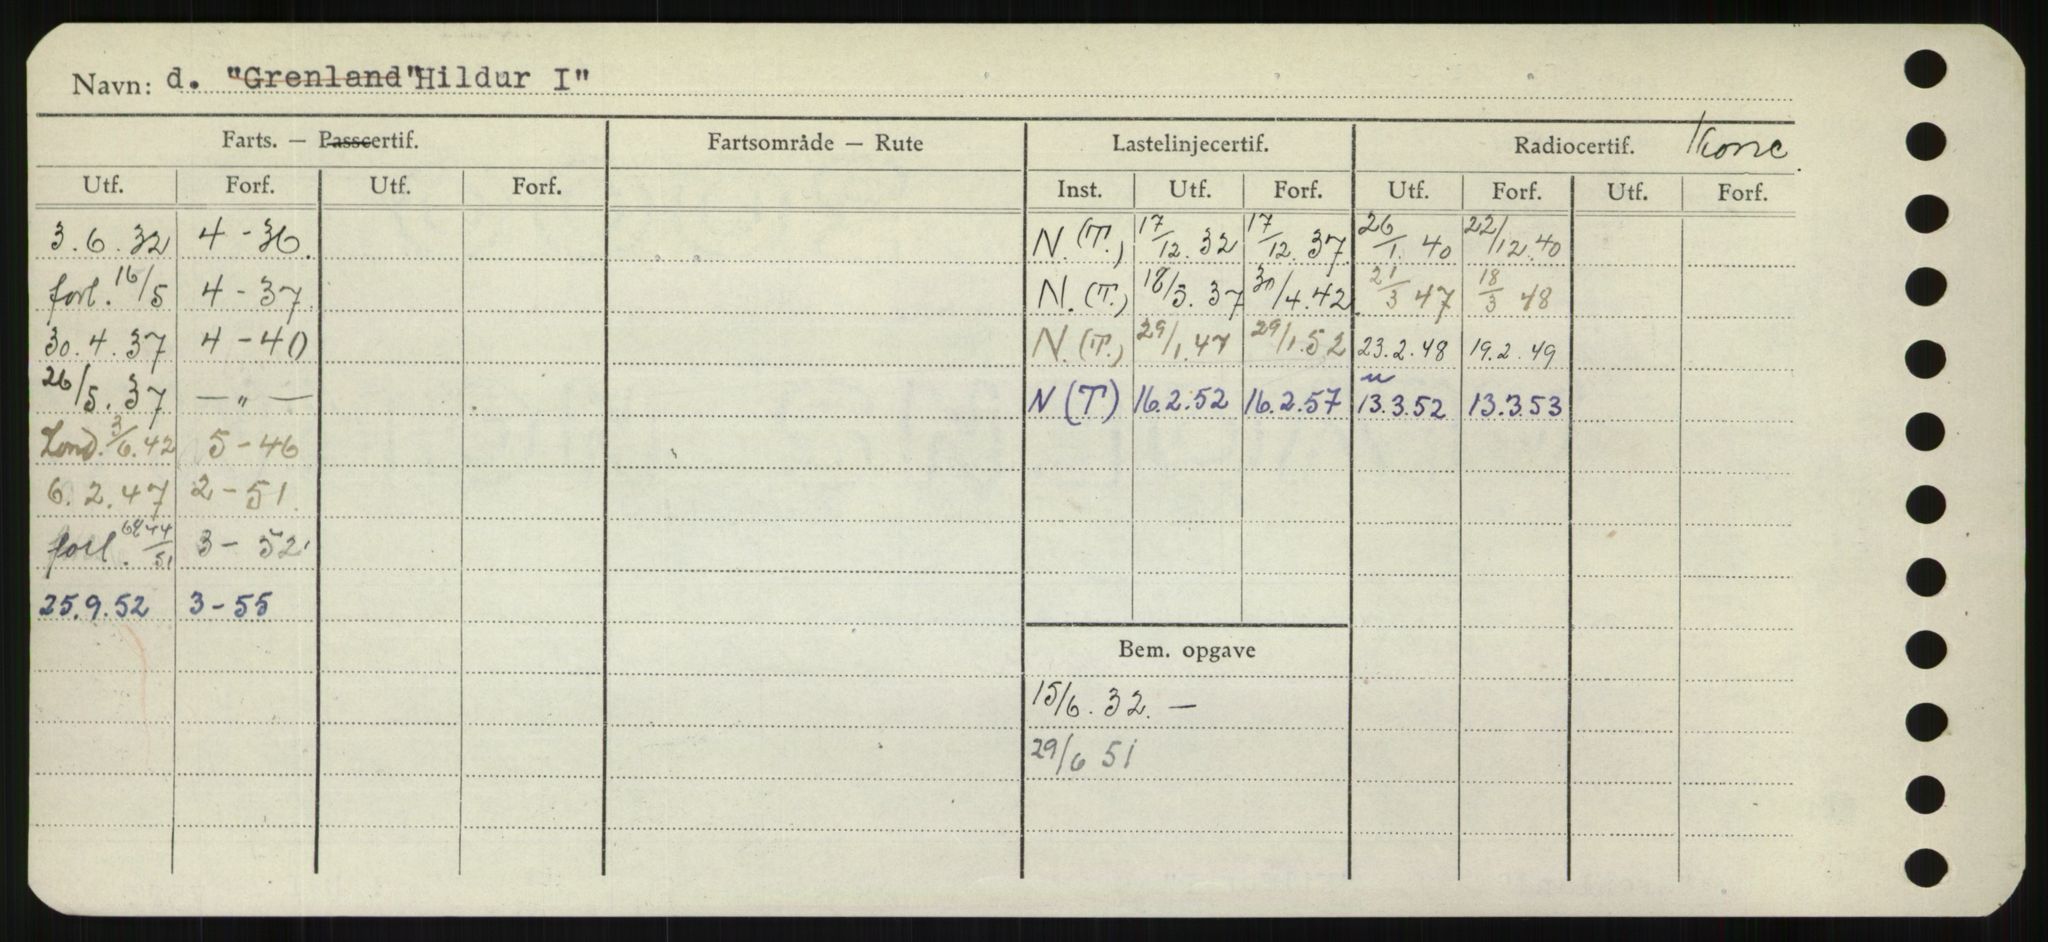 Navn: d. "Grenland" Hildur I"
Farts. — Passcertif. Fartsområde — Rute Lastelinjecertif. Radiocertif. Konc.
Utf. Forf. Utf. Forf. Inst. Utf. Forf. Utf. Forf. Utf. Forf.
3.6.32 4-36. N.(T.) 17/12.32 17/12.37 26/1.40 22/12.40
forl. 16/5 4-37. N.(T.) 18/3.37 30/4.42 21/3 47 18/3 48
30.4.37 4-40 N.(T.) 29/1.47 29/1.52 23.2.48 19.2.49
26/5.37 —"— N(T) 16.2.52 16.2.57 13.3.52 13.3.53
Lond. 3/6.42 5-46
6.2.47 2-51.
forl. 3-52
25.9.52 3-55
Bem. opgave
15/6.32. —
29/6 51